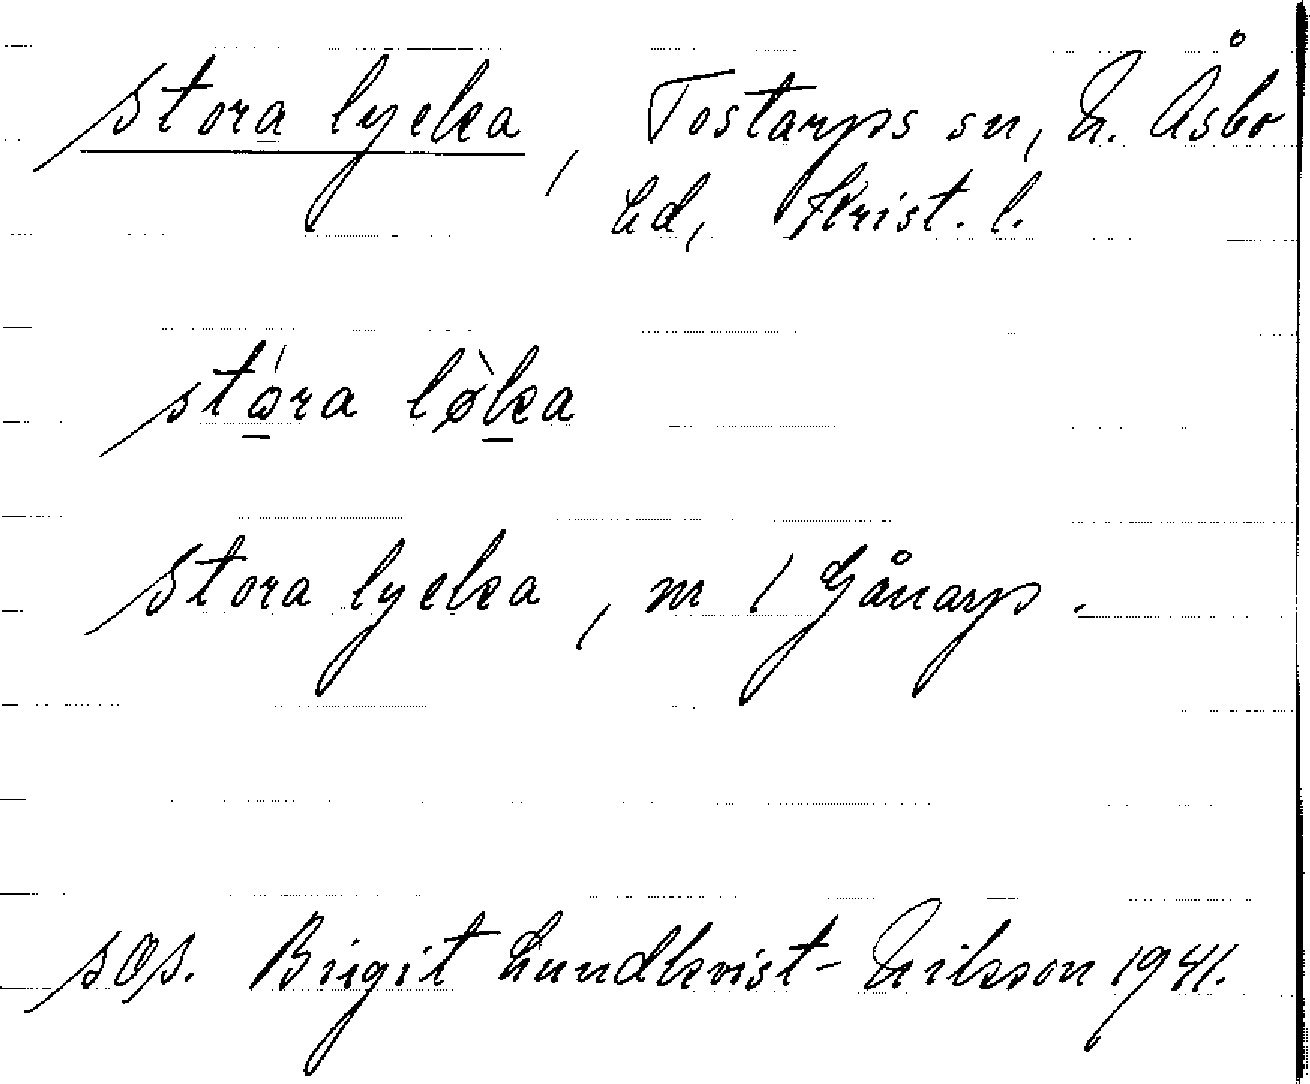 stora lycka, Tostarps sn, N. Åsbo
hd, Krist. l.
stóra lø̀ka
stora lycka, m / Gånarp.
sos. Birgit Lundkvist-Nilsson 1941.